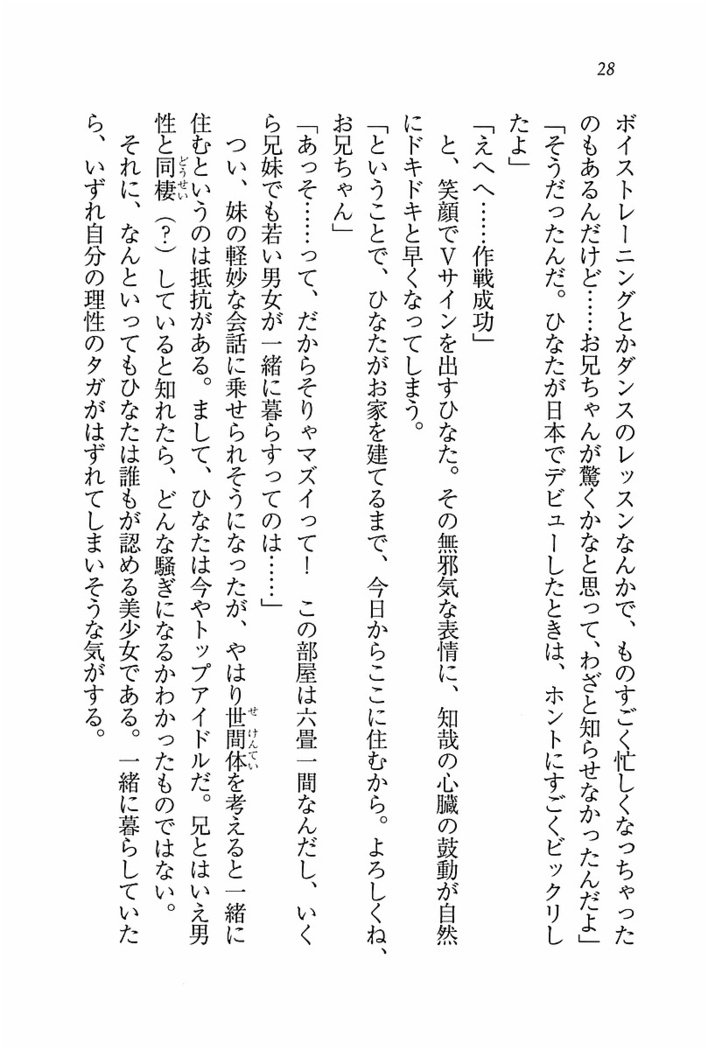 28
ボイストレーニングとかダンスのレッスンなんかで、ものすごく忙しくなっちゃった
のもあるんだけど……お兄ちゃんが驚くかなと思って、わざと知らせなかったんだよ」
「そうだったんだ。ひなたが日本でデビューしたときは、ホントにすごくビックリし
たよ」
「えへへ……作戦成功」
と、笑顔でVサインを出すひなた。その無邪気な表情に、知哉の心臓の鼓動が自然
にドキドキと早くなってしまう。
「ということで、ひなたがお家を建てるまで、今日からここに住むから。よろしくね、
お兄ちゃん」
「あっそ……って、だからそりゃマズイって！　この部屋は六畳一間なんだし、いく
ら兄妹でも若い男女が一緒に暮らすってのは……」
つい、妹の軽妙な会話に乗せられそうになったが、やはり世間体を考えると一緒に
住むというのは抵抗がある。まして、ひなたは今やトップアイドルだ。兄とはいえ男
性と同棲（？）していると知れたら、どんな騒ぎになるかわかったものではない。
それに、なんといってもひなたは誰もが認める美少女である。一緒に暮らしていた
ら、いずれ自分の理性のタガがはずれてしまいそうな気がする。